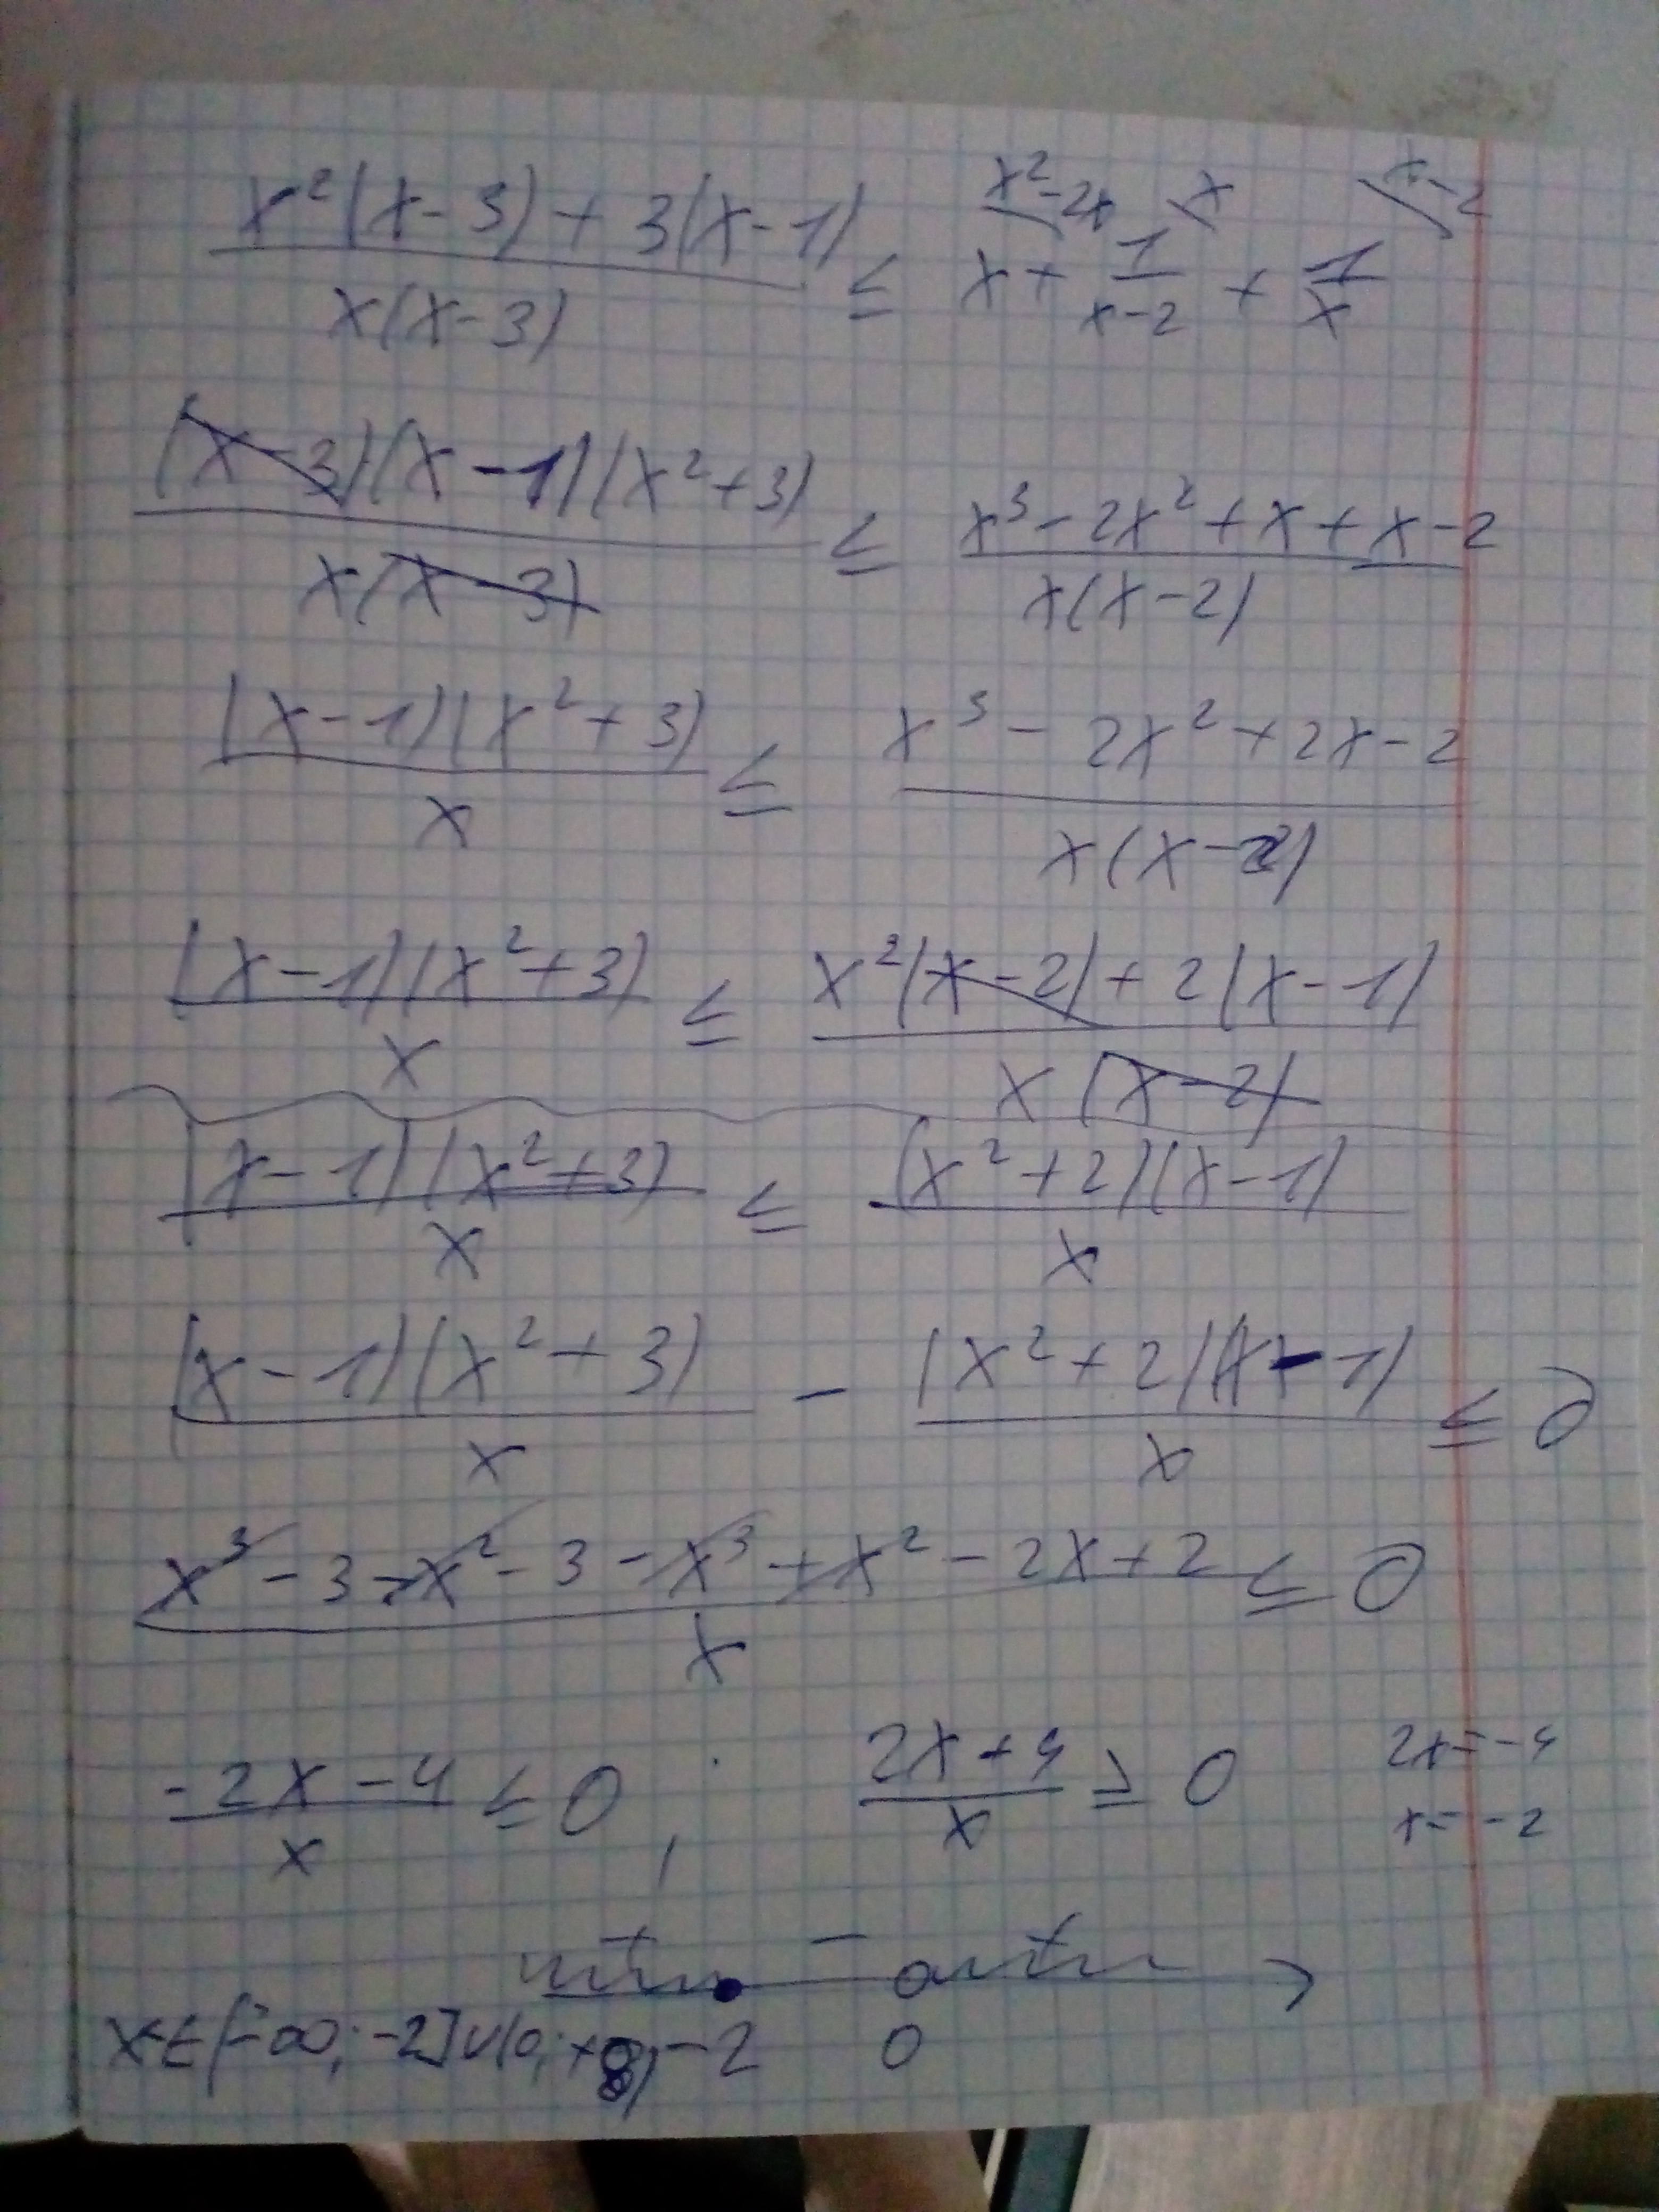 x²-2x x x-2
x²(x-3)+3(x-1) / x(x-3) ≤ x + 1/x-2 + 1/x
(x-3)(x-1)(x²+3) / x(x-3) ≤ x³-2x²+x+x-2 / x(x-2)
(x-1)(x²+3) / x ≤ x³-2x²+2x-2 / x(x-2)
(x-1)(x²+3) / x ≤ x²(x-2)+2(x-1) / x(x-2)
(x-1)(x²+3) / x ≤ (x²+2)(x-1) / x
(x-1)(x²+3) / x - (x²+2)(x-1) / x ≤ 0
x³-3-x²-3-x³+x²-2x+2 / x ≤ 0
-2x-4 / x ≤ 0 ; 2x+4 / x ≥ 0 2x=-4
x=-2
+ - +
x∈[-∞;-2]∪(0;+∞) -2 0